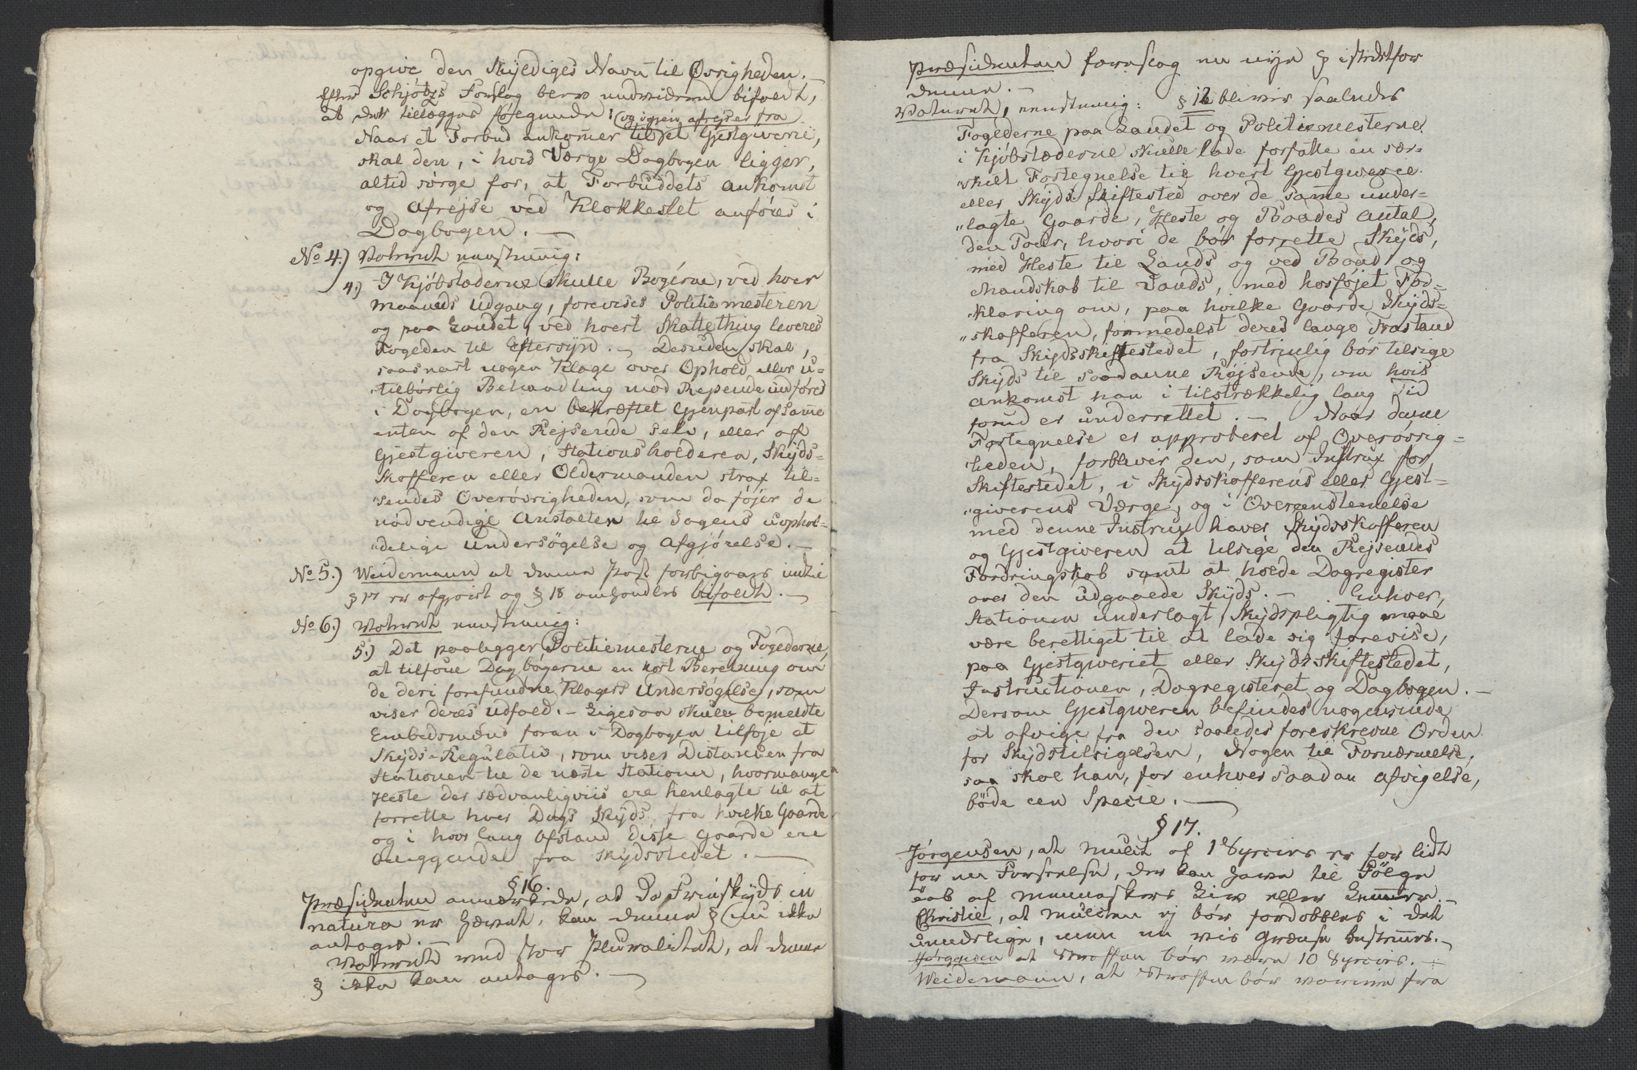 opgive den skyldiges Navn til Øvrigheden. —
Efter Schjøtzs Forslag blev nærmere bifaldt,
at dertil tillægges følgende: (og igjen afrejser fra
Naar et Forbud ankommer til et Gjestgiverie,
skal den, i hvis Værge Dagbogen ligger,
altid sørge for, at Forbuddets Ankomst
og Afrejse ved Klokkeslet anføres i
Dagbogen. —
No 4.) Voteret eenstemmig:
4.) I Kjøbstæderne skulle Bøgerne, ved hver
Maaneds Udgang, forevises Politiemesteren
og paa Landet, ved hvert Skattething leveres
Fogeden til Eftersyn. — Desuden skal,
saasnart nogen Klage over Ophold eller u-
tilbørlig Behandling mod Rejsende indføres
i Dagbogen, en bekræftet Gjenpart af samme
enten af den Rejsende selv, eller af
Gjestgiveren, Stationsholderen, Skyds-
skafferen eller Oldermanden strax til-
sendes Overøvrigheden, som da føjer de
nødvendige Anstalter til Sagens uophol-
delige Undersøgelse og Afgjørelse. —
No 5.) Weidemann at denne Post forbigaaes indtil
§ 17 er afgjort og § 18 omhandles bifaldt. —
No 6.) Voteret eenstemmig:
5.) Det paalegger Politiemesterne og Fogederne,
at tilføie Dagbøgerne en kort Beretning om
de deri forefundne Klagers Undersøgelse, som
viser deres Udfald. — Ligesaa skulle bemeldte
Embedsmænd foran i Dagbogen tilføje et
Skyds-Regulativ, som viser Distancen fra
Stationen til de næste Stationer, hvormange
Heste der sædvanligviis ere henlagte til at
forrette hver Dags Skyds, fra hvilke Gaarde
og i hvor lang Afstand disse Gaarde ere
beliggende fra Skydsstedet. —
§ 16.
Præsidenten anmærkede, at da Friskyds in
natura er hævet, kan denne § nu ikke
antages. —
Voteret med stor Pluralitet, at denne
§ ikke kan antages. —
Præsidenten foreslog en nye § istedetfor
denne. —
Voteret, eenstemmig: § 16 bliver saaledes
Fogederne paa Landet og Politiemesterne
i Kjøbstæderne skulle lade forfatte en sær-
skilt Fortegnelse til hvert Gjestgiverie
eller Skyds-Skiftested over de samme under-
lagte Gaarde, Heste og Baades Antal,
den Tour, hvori de bør forrette Skyds,
med Heste til Lands og ved Baad og
Mandskab til Vands, med hosføjet For-
klaring om, paa hvilke Gaarde Skyds-
skafferen, formedelst deres lange Frastand
fra Skydsskiftestedet, fortrinlig bør tilsige
Skyds til saadanne Rejsende, om hvis
Ankomst han i tilstrækkelig lang Tid
forud er underrettet. — Naar denne
Fortegnelse er approberet af Overøvrig-
heden, forbliver den, som Instrux for
Skiftestedet, i Skydsskafferens eller Gjest-
giverens Værge, og i Overeensstemmelse
med denne Instrux haver Skydsskafferen
og Gjestgiveren at tilsige den Rejsendes
Fordringskab samt at holde Dagregister
over den udgaaede Skyds. — Enhver,
Stationen underlagt Skydspligtig maae
være berettiget til at lade sig forevise,
paa Gjestgiveriet eller Skydsskiftestedet,
Instructionen, Dagregisteret og Dagbogen. —
Dersom Gjestgiveren befindes nogensinde
at afvige fra den saaledes foreskrevne Orden
for Skydstilsigelsen, Nogen til Fornærmelse,
saa skal han, for enhver saadan Afvigelse,
bøde een Specie. —
§ 17.
Jørgensen, at Mulct af 1 Species er for lidt
for en Forseelse, der kan have til Følge
Tab af Menneskers Liv eller Lemmer. —
Christie, at Mulcten ej bør fordobbles i det
uendelige, men en vis Grændse bestemmes. —
Jørgensen at Straffen bør være 10 Species. —
Weidemann, at Straffen bør varieere fra